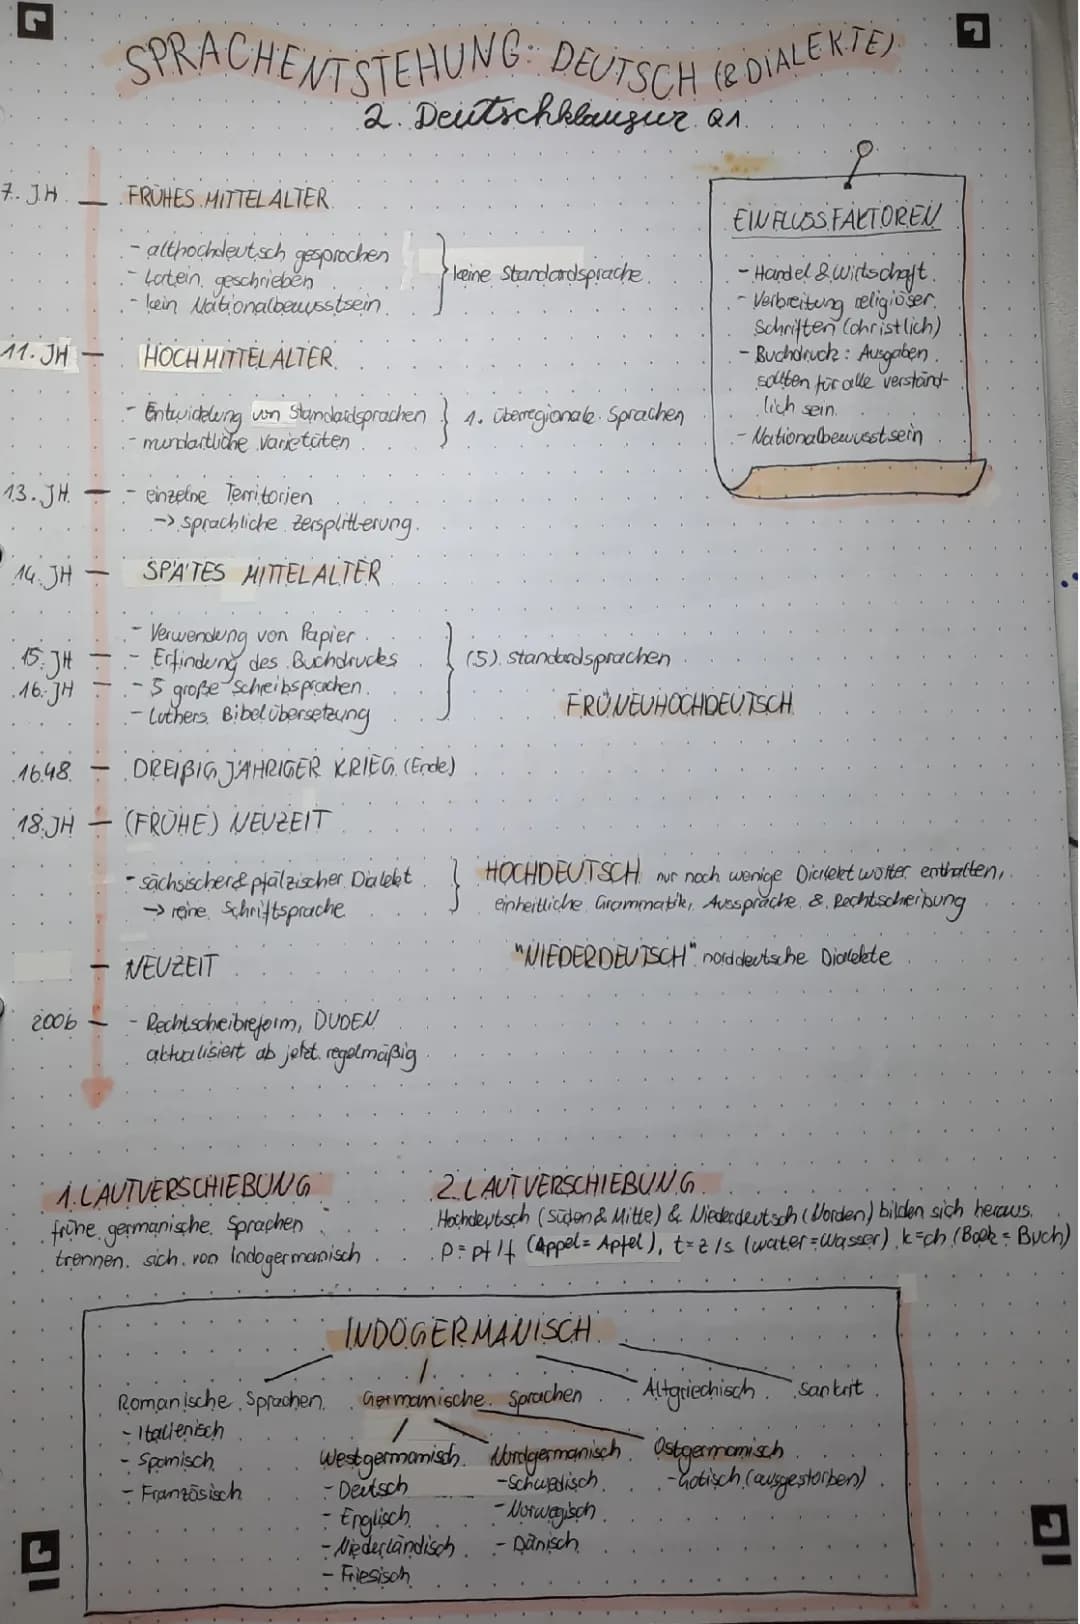 SPRACHENTSTEHUNG: DEUTSCH (& DIALEKTE)
2. Deutschklausur Q1
7. JH
FRÜHES MITTELALTER
- althochdeutsch gesprochen
- Latein geschrieben
- kein Nationalbewusstsein
keine Standardsprache
EINFLUSSFAKTOREN
- Handel & Wirtschaft
- Verbreitung religiöser
Schriften (christlich)
- Buchdruck: Ausgaben
sollten für alle verständ-
lich sein
- Nationalbewusstsein
11. JH
HOCHMITTELALTER
- Entwicklung von Standardsprachen
- mundartliche Varietäten
1. überregionale Sprachen
13. JH
- einzelne Territorien
-> sprachliche Zersplitterung
14. JH
SPÄTES MITTELALTER
- Verwendung von Papier
15. JH
- Erfindung des Buchdruckes
16. JH
- 5 große Schreibsprachen
- Luthers Bibelübersetzung
(5) Standardsprachen
FRÜNEUHOCHDEUTSCH
1648
DREIßIGJÄHRIGER KRIEG (Ende)
18. JH
(FRÜHE) NEUZEIT
- sächsischer & pfälzischer Dialekt
-> reine Schriftsprache
HOCHDEUTSCH nur noch wenige Dialektwötter enthalten,
einheitliche Grammatik, Aussprache & Rechtscheibung
NEUZEIT
"NIEDERDEUTSCH" norddeutsche Dialekte
2006
- Rechtscheibreform, DUDEN
aktualisiert ab jetzt regelmäßig
1. LAUTVERSCHIEBUNG
frühe germanische Sprachen
trennen sich von Indogermanisch
2. LAUTVERSCHIEBUNG
Hochdeutsch (Süden & Mitte) & Niederdeutsch (Norden) bilden sich heraus.
p = pf/f (Appel = Apfel), t = z/s (water = wasser), k = ch (Boek = Buch)
INDOGERMANISCH
Romanische Sprachen
Germanische Sprachen
Altgriechisch
Sankrit
- Italienisch
- Spanisch
- Französisch
Westgermanisch
- Deutsch
- Englisch
- Niederländisch
- Friesisch
Nordgermanisch
- Schwedisch
- Norwegisch
- Dänisch
Ostgermanisch
- Gotisch (ausgestorben)